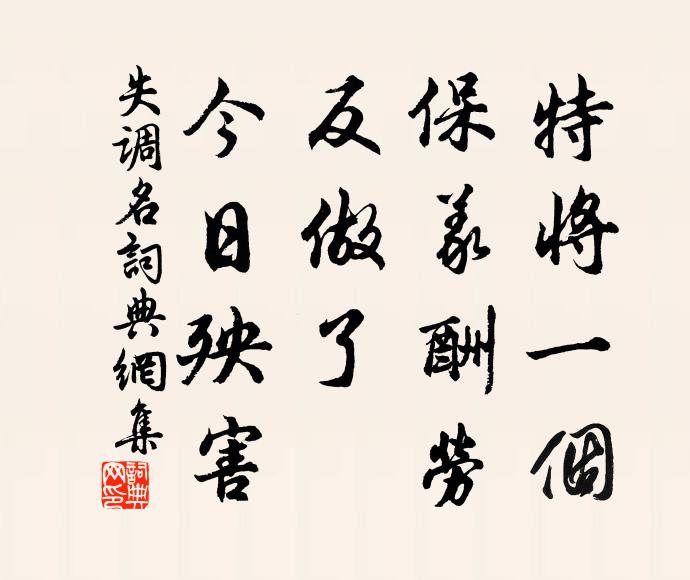 特將一個
保義酬勞
反做了
今日殃害
失調名詞典網集
詞典網印